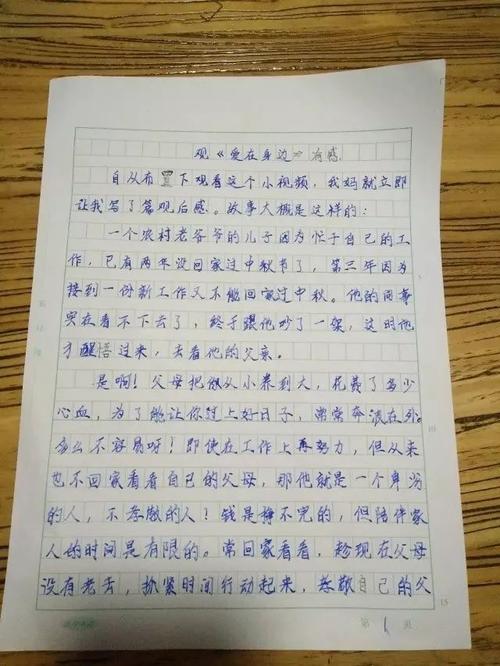 观《爱在身边》有感
自从布置下观看这个小视频，我妈就立即
让我写了篇观后感。故事大概是这样的：
一个农村老爷爷的儿子因为忙于自己的工
作，已有两年没回家过中秋节了，第三年因为
接到一份新工作又不能回家过中秋。他的同事
实在看不下去了，终于跟他吵了一架，这时他
才醒悟过来，去看他的父亲。
是啊！父母把你从小养到大，花费了多少
心血，为了能让你过上好日子，常常奔波在外。
多么不容易呀！即使在工作上再努力，但从来
也不回家看看自己的父母，那他就是一个卑劣
的人，不孝敬的人！钱是挣不完的，但陪伴家
人的时间是有限的。常回家看看，趁现在父母
没有老去，抓紧时间行动起来，孝敬自己的父
第 1 页
15